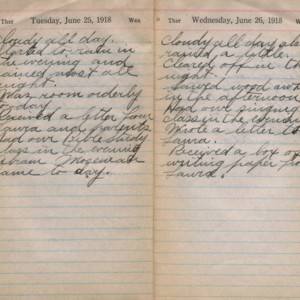 Ther Tuesday, June 25, 1918 Wea
Cloudy all day.
Started to rain in
the evening and
rained most all
night.
Was room orderly
today.
Received a letter from
Laura and parents.
Had our Bible Study
class in the evening
came to day.
Ther Wednesday, June 26, 1918
Cloudy all day also
rained a little.
Cleared off in the
night.
Sawed wood
in the afternoon.
Had our singing
class in the evening
Wrote a letter to
Laura.
Received a box of
writing paper from
Laura.